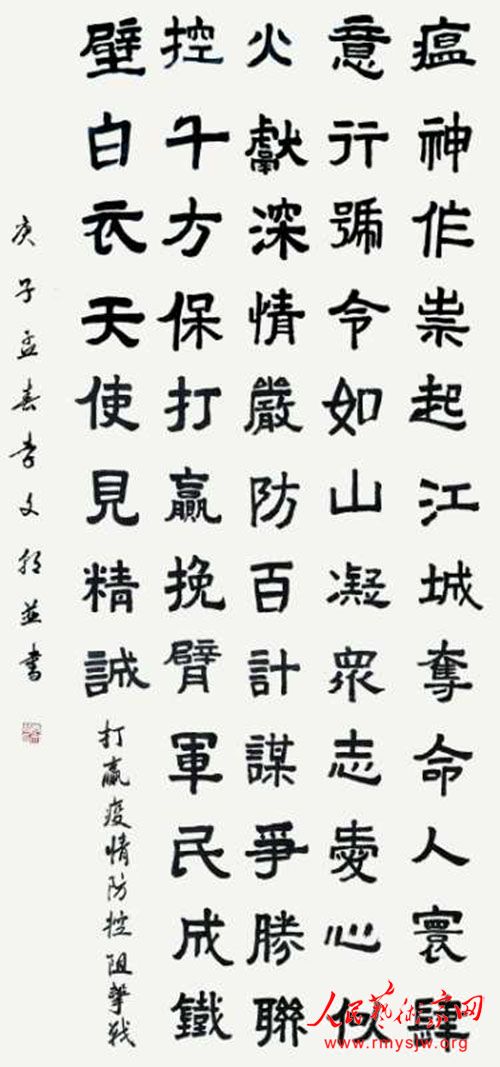 瘟神作祟起江城奪命人寰肆
意行號令如山凝衆志愛心似
火獻深情嚴防百計謀爭勝聯
控千方保打贏挽臂軍民成鐵
壁白衣天使見精誠
打贏疫情防控阻擊战
庚子孟春李文並書
人民藝術家网
www.rmysjw.org